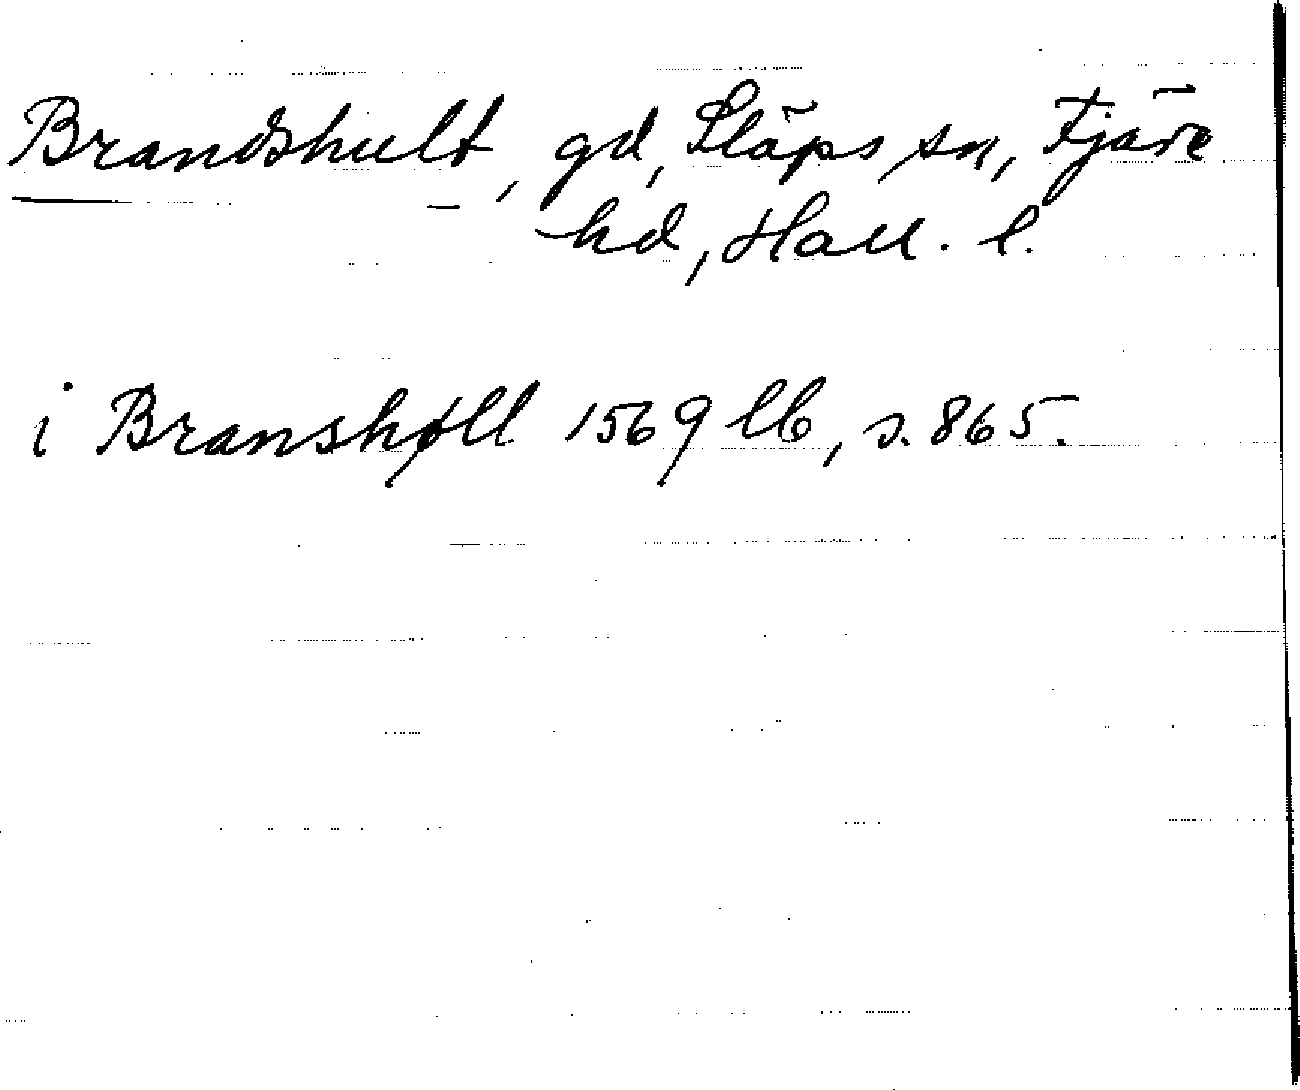 Brandshult, gd, Släps sn, Fjäre
hd, Hall. l.
i Branshøll 1569 lb, s. 865.